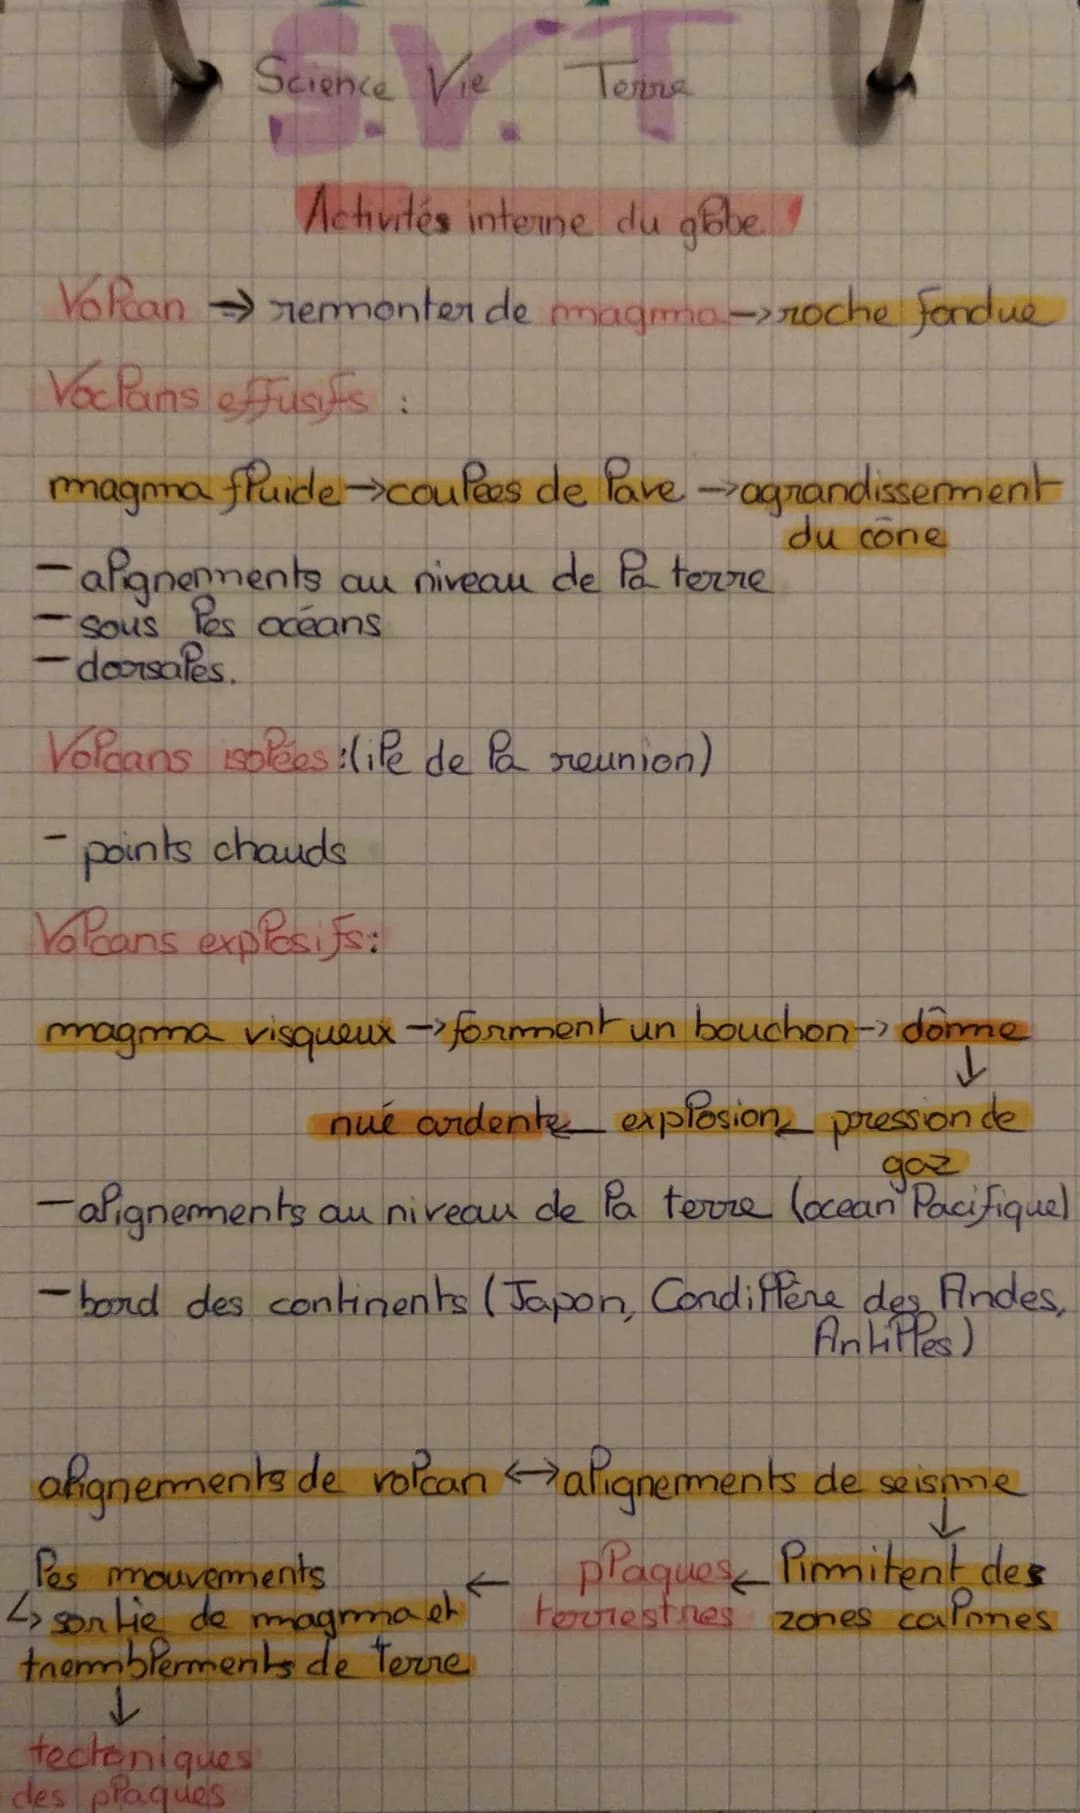 S.V.T
Science Vie Terre
Activités interne du globe
Volcan → remonter de magma → roche fondue
Voclans effusifs :
magma fluide → coulées de lave → agrandissement
du cône
- alignements au niveau de la terre
- sous les océans
- doorsales.
Volcans isolées : (ile de la reunion)
- points chauds
Volcans explosifs :
magma visqueux → forment un bouchon → dôme
↓
nué ardente ← explosion ← pression de
gaz
- alignements au niveau de la terre (ocean Pacifique)
- bord des continents (Japon, Condillère des Andes,
Antilles)
alignements de volcan ↔ alignements de seisme
↓
les mouvements ← plaques ← limitent des
↳ sortie de magma et terrestres zones calmes
tremblements de Terre
↓
tectoniques
des plaques